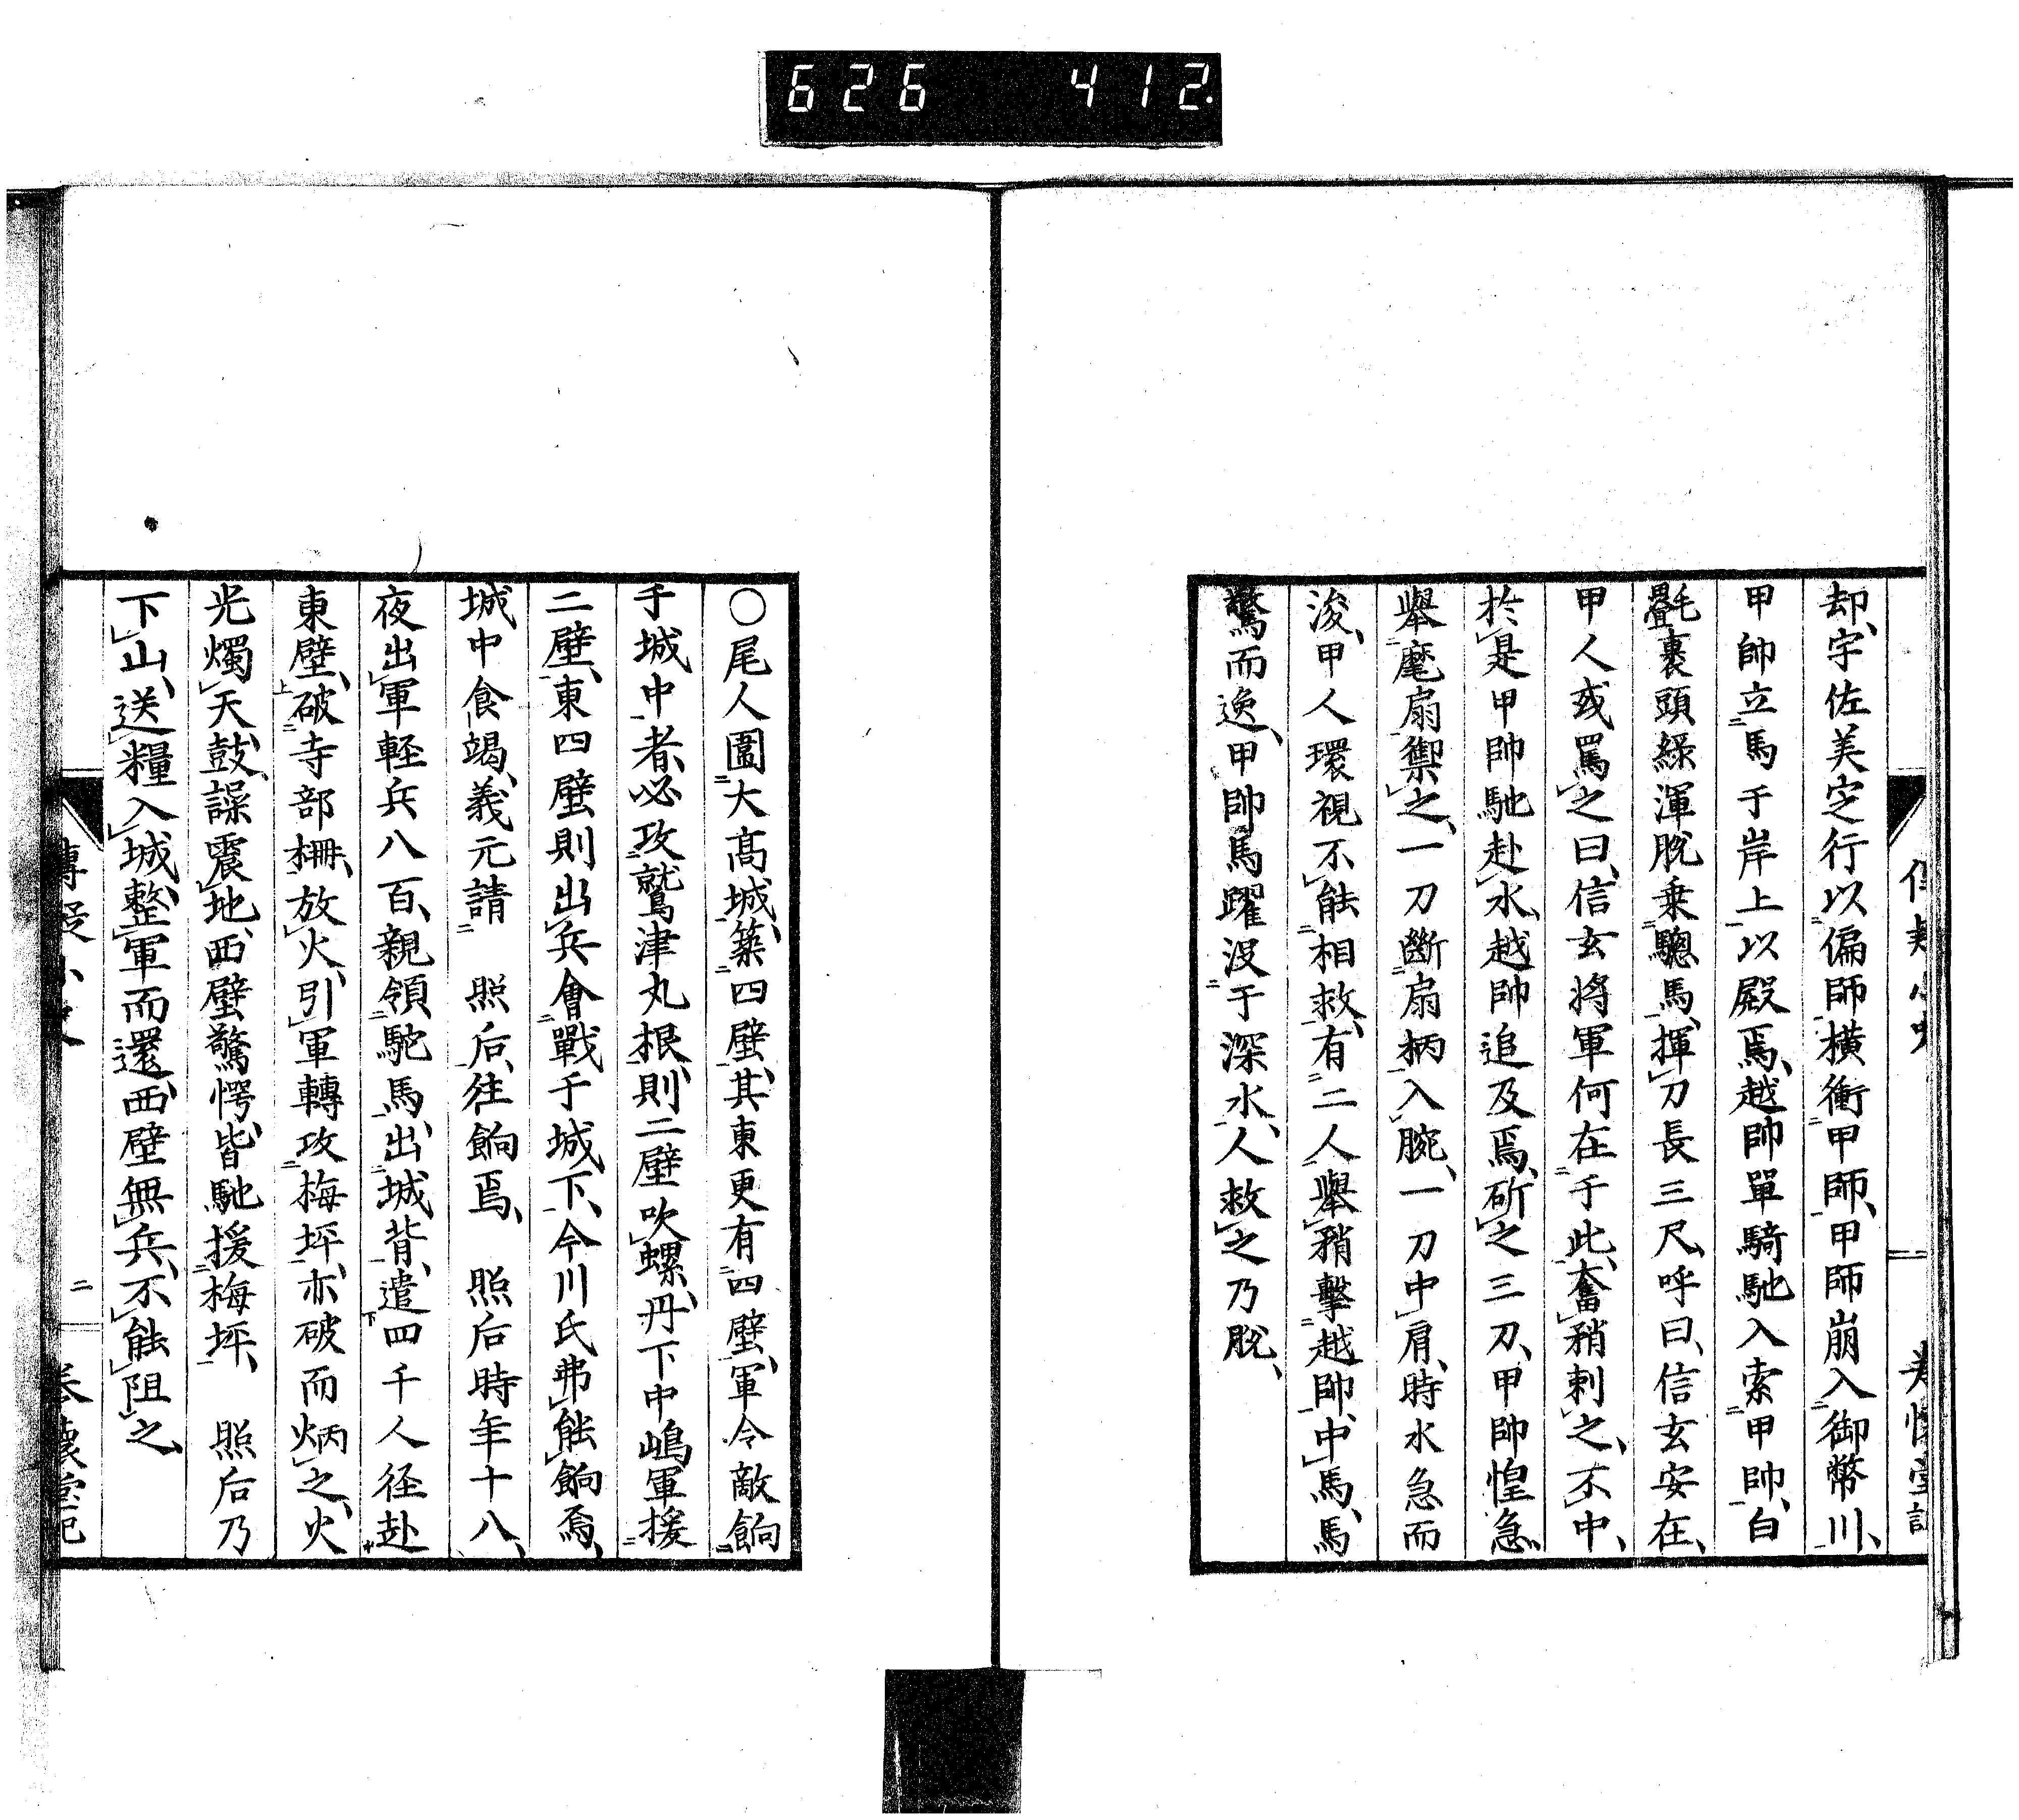 626 412.
却、宇佐美定行以偏師横衝甲師、甲師崩入御幣川、
甲帥立馬于岸上以殿焉、越帥單騎馳入索甲帥、白
氎裹頭緑渾脱乗驄馬、揮刀長三尺、呼曰、信玄安在、
甲人或罵之曰、信玄将軍何在于此、奮矟刺之、不中、
於是甲帥馳赴水、越帥追及焉、斫之三刀、甲帥惶急
擧麾扇禦之、一刀斷扇柄入腕、一刀中肩、時水急而
浚、甲人環視不能相救、有二人擧矟擊越帥、中馬、馬
驚而逸、甲帥馬躍没于深水、人救之乃脱、
〇尾人圍大髙城、築四壁、其東更有四壁、軍令敵餉
手城中者、必攻鷲津丸根、則二壁吹螺、丹下中嶋軍援
二壁、東四壁則出兵會戰于城下、今川氏弗能餉焉、
城中食竭、義元請 照后、往餉焉、 照后時年十八、
夜出軍軽兵八百、親領駝馬、出城背、遣四千人径赴
東壁、破寺部柵、放火、引軍轉攻梅坪、亦破而炳之、火
光燭天、鼓譟震地、西壁驚愕、皆馳援梅坪、 照后乃
下山、送糧入城、整軍而還、西壁無兵、不能阻之、
二